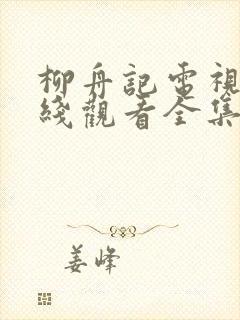 柳舟記電視
綫觀看全集
姜峰